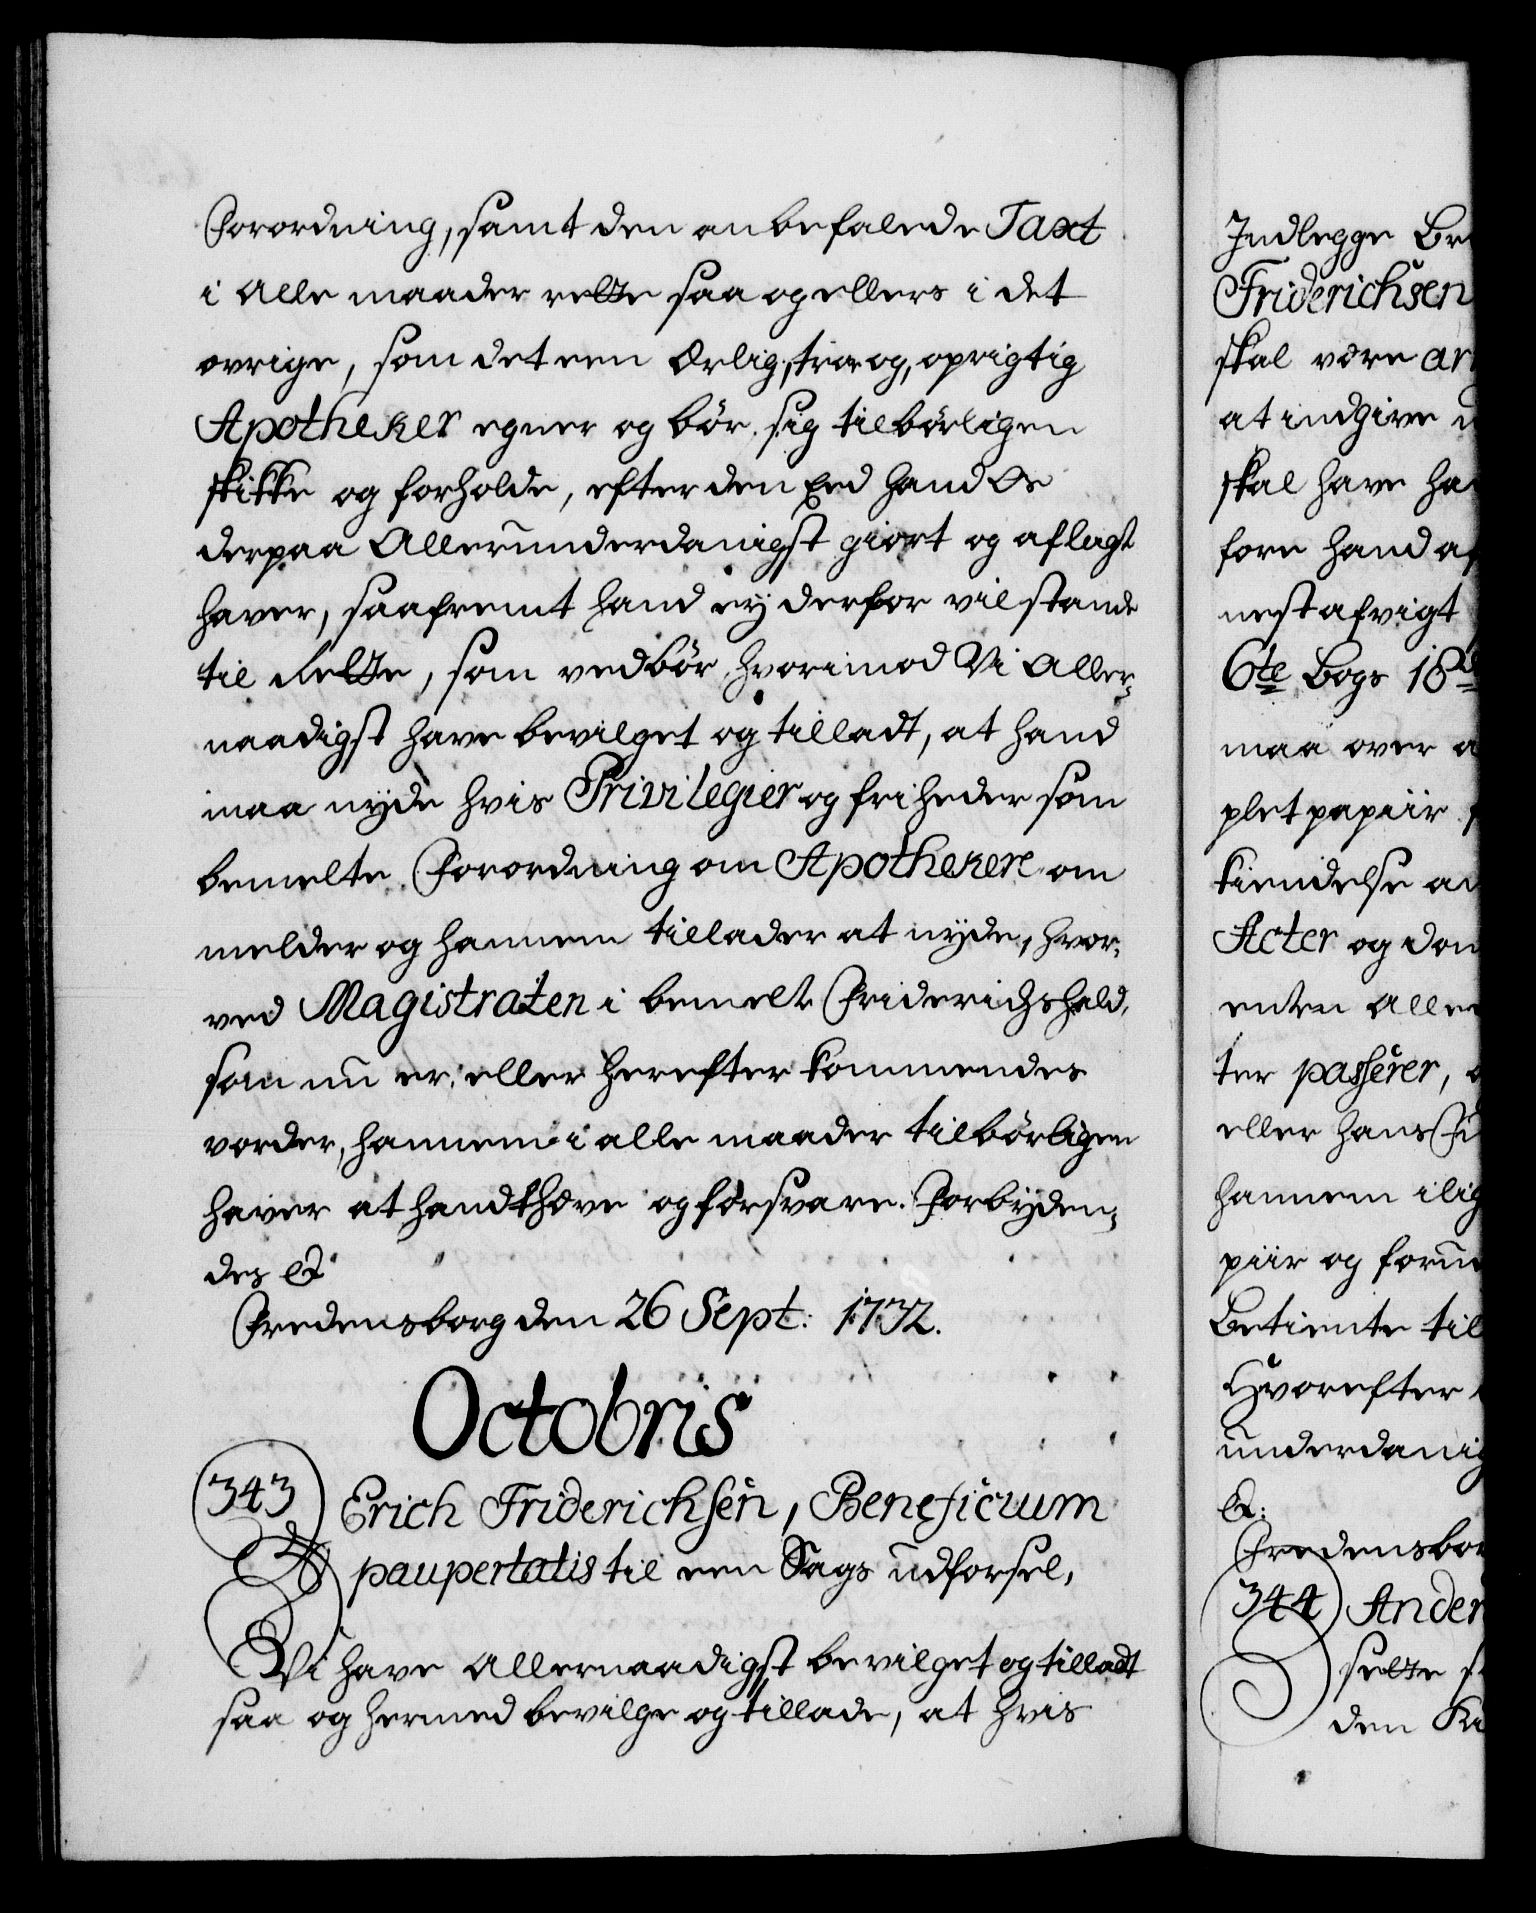 Forordning, samt den anbefalede Taxt
i Alle maader rette saa og ellers i det
øvrige, som det een Ærlig, troe og, oprigtig
Apotheker egner og bør, sig tilbørligen
skikke og forholde, efter den Eed hand Os
derpaa Allerunderdanigst giort og aflagt
haver, saafremt hand ey derfor vil stande
til Rette, som vedbør, hvorimod Vi Aller-
naadigst have bevilget og tilladt, at hand
maa nyde hvis Privilegier og friheder som
bemelte Forordning om Apothekere om
melder og hannem tillader at nyde, hvor-
ved Magistraten i bemelte Friderichshald,
som nu er, eller herefter kommendes
vorder, hannem i alle maader tilbørligen
haver at handthæve og forsvare. Forbyden-
des &
Fredensborg den 26 Sept: 1732.
Octobris
343 Erich Friderichsen, Beneficium
paupertatis til een Sags udførsel,
Vi have Allernaadigst bevilget og tilladt
saa og hermed bevilge og tillade, at hvis
Indlegge Be
Friderichsen
skal være ar
at indgive
skal have ha
fore hand af
nest afvigt
6te Bogs 18
maa over a
plet papiir
kiendelse an
Acter og dom
enten Aller
ter passerer,
eller hans Fu
hannem ilig
piir og foru
Betiente til
Hvorefter
underdanig
&:
Fredensbor
344 Ander
sette s
den Ki